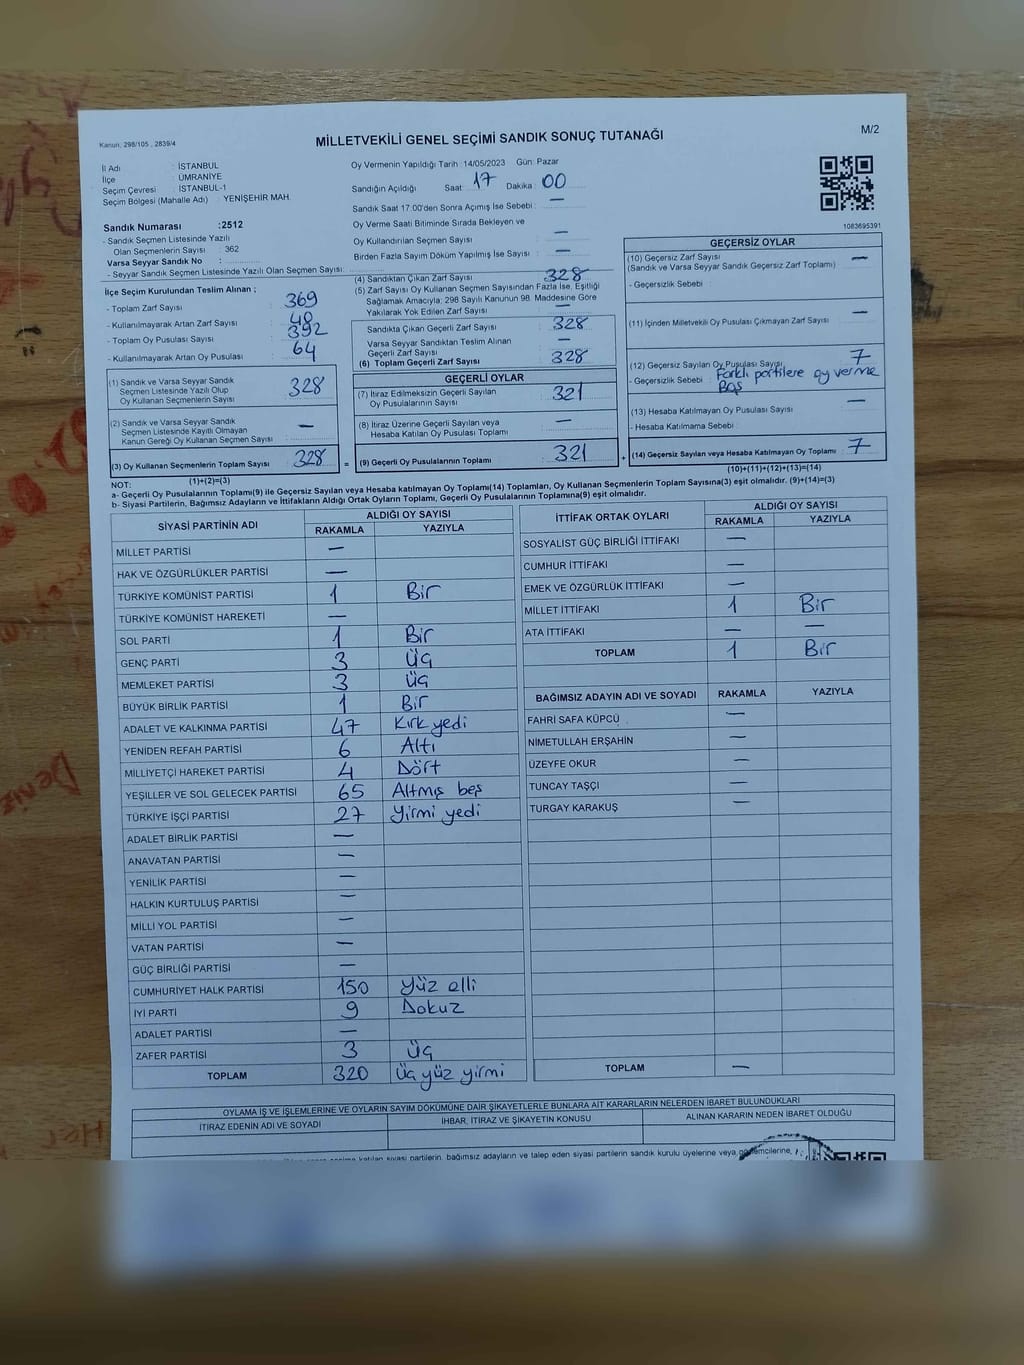 Kanun, 298/105 , 2839/4
MİLLETVEKİLİ GENEL SEÇİMİ SANDIK SONUÇ TUTANAĞI
M/2
İl Adı : İSTANBUL
İlçe : ÜMRANİYE
Seçim Çevresi : İSTANBUL-1
Seçim Bölgesi (Mahalle Adı) : YENİŞEHİR MAH.
Sandık Numarası :2512
- Sandık Seçmen Listesinde Yazılı
Olan Seçmenlerin Sayısı : 362
Varsa Seyyar Sandık No :
- Seyyar Sandık Seçmen Listesinde Yazılı Olan Seçmen Sayısı:
İlçe Seçim Kurulundan Teslim Alınan ;
- Toplam Zarf Sayısı : 369
- Kullanılmayarak Artan Zarf Sayısı :
- Toplam Oy Pusulası Sayısı : 392
- Kullanılmayarak Artan Oy Pusulası : 64
(1) Sandık ve Varsa Seyyar Sandık
Seçmen Listesinde Yazılı Olup
Oy Kullanan Seçmenlerin Sayısı : 328
(2) Sandık ve Varsa Seyyar Sandık
Seçmen Listesinde Kayıtlı Olmayan
Kanun Gereği Oy Kullanan Seçmen Sayısı : —
(3) Oy Kullanan Seçmenlerin Toplam Sayısı : 328
(1)+(2)=(3)
Oy Vermenin Yapıldığı Tarih : 14/05/2023 Gün: Pazar
Sandığın Açıldığı Saat : 17 Dakika : 00
Sandık Saat 17:00'den Sonra Açılmış İse Sebebi : —
Oy Verme Saati Bitiminde Sırada Bekleyen ve
Oy Kullandırılan Seçmen Sayısı : —
Birden Fazla Sayım Dökümü Yapılmış İse Sayısı : —
(4) Sandıktan Çıkan Zarf Sayısı : 328
(5) Zarf Sayısı Oy Kullanan Seçmen Sayısından Fazla İse, Eşitliği
Sağlamak Amacıyla; 298 Sayılı Kanunun 98. Maddesine Göre
Rakılarak Yok Edilen Zarf Sayısı : —
Sandıkta Çıkan Geçerli Zarf Sayısı : 328
Varsa Seyyar Sandıktan Teslim Alınan
Geçerli Zarf Sayısı : —
(6) Toplam Geçerli Zarf Sayısı : 328
GEÇERLİ OYLAR
(7) İtiraz Edilmeksizin Geçerli Sayılan
Oy Pusulalarının Sayısı : 321
(8) İtiraz Üzerine Geçerli Sayılan veya
Hesaba Katılan Oy Pusulası Toplamı : —
= (9) Geçerli Oy Pusulalarının Toplamı : 321 +
1083695391
GEÇERSİZ OYLAR
(10) Geçersiz Zarf Sayısı : —
(Sandık ve Varsa Seyyar Sandık Geçersiz Zarf Toplamı)
- Geçersizlik Sebebi :
(11) İçinden Milletvekili Oy Pusulası Çıkmayan Zarf Sayısı : —
(12) Geçersiz Sayılan Oy Pusulası Sayısı : 7
- Geçersizlik Sebebi : Farklı partilere oy verme
Boş
(13) Hesaba Katılmayan Oy Pusulası Sayısı : —
- Hesaba Katılmama Sebebi :
(14) Geçersiz Sayılan veya Hesaba Katılmayan Oy Toplamı : 7
(10)+(11)+(12)+(13)=(14)
NOT:
a- Geçerli Oy Pusulalarının Toplamı(9) ile Geçersiz Sayılan veya Hesaba Katılmayan Oy Toplamı(14) Toplamları, Oy Kullanan Seçmenlerin Toplam Sayısına(3) eşit olmalıdır. (9)+(14)=(3)
b- Siyasi Partilerin, Bağımsız Adayların ve İttifakların Aldığı Ortak Oyların Toplamı, Geçerli Oy Pusulalarının Toplamına(9) eşit olmalıdır.
SİYASİ PARTİNİN ADI ALDIĞI OY SAYISI
RAKAMLA YAZIYLA
MİLLET PARTİSİ —
HAK VE ÖZGÜRLÜKLER PARTİSİ —
TÜRKİYE KOMÜNİST PARTİSİ 1 Bir
TÜRKİYE KOMÜNİST HAREKETİ —
SOL PARTİ 1 Bir
GENÇ PARTİ 3 Üç
MEMLEKET PARTİSİ 3 Üç
BÜYÜK BİRLİK PARTİSİ 1 Bir
ADALET VE KALKINMA PARTİSİ 47 Kırk yedi
YENİDEN REFAH PARTİSİ 6 Altı
MİLLİYETÇİ HAREKET PARTİSİ 4 Dört
YEŞİLLER VE SOL GELECEK PARTİSİ 65 Altmış beş
TÜRKİYE İŞÇİ PARTİSİ 27 Yirmi yedi
ADALET BİRLİK PARTİSİ —
ANAVATAN PARTİSİ —
YENİLİK PARTİSİ —
HALKIN KURTULUŞ PARTİSİ —
MİLLİ YOL PARTİSİ —
VATAN PARTİSİ —
GÜÇ BİRLİĞİ PARTİSİ —
CUMHURİYET HALK PARTİSİ 150 Yüz elli
İYİ PARTİ 9 Dokuz
ADALET PARTİSİ —
ZAFER PARTİSİ 3 Üç
TOPLAM 320 Üç yüz yirmi
İTTİFAK ORTAK OYLARI ALDIĞI OY SAYISI
RAKAMLA YAZIYLA
SOSYALİST GÜÇ BİRLİĞİ İTTİFAKI —
CUMHUR İTTİFAKI —
EMEK VE ÖZGÜRLÜK İTTİFAKI —
MİLLET İTTİFAKI 1 Bir
ATA İTTİFAKI — —
TOPLAM 1 Bir
BAĞIMSIZ ADAYIN ADI VE SOYADI RAKAMLA YAZIYLA
FAHRİ SAFA KÜPCÜ —
NİMETULLAH ERŞAHİN —
ÜZEYFE OKUR —
TUNCAY TAŞÇI —
TURGAY KARAKUŞ —
TOPLAM —
OYLAMA İŞ VE İŞLEMLERİNE VE OYLARIN SAYIM DÖKÜMÜNE DAİR ŞİKAYETLERLE BUNLARA AİT KARARLARIN NELERDEN İBARET BULUNDUKLARI
İTİRAZ EDENİN ADI VE SOYADI İHBAR, İTİRAZ VE ŞİKAYETİN KONUSU ALINAN KARARIN NEDEN İBARET OLDUĞU
katılan siyasi partilerin, bağımsız adayların ve talep eden siyasi partilerin sandık kurulu üyelerine veya
DENİZ
Her